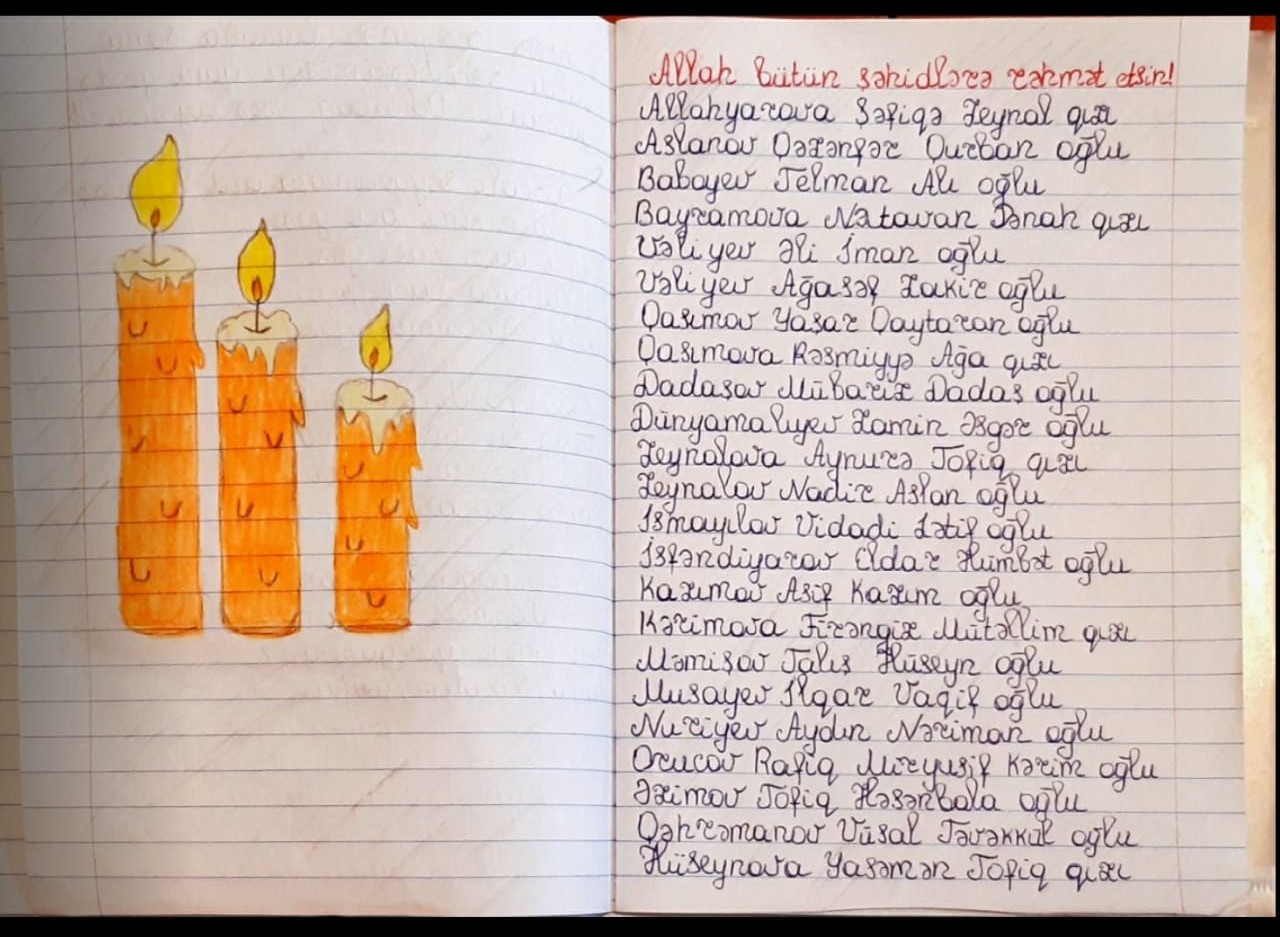 Allah bütün şəhidlərə rəhmət etsin!
Allahyarova Şəfiqə Zeynal qızı
Aslanov Qəzənfər Qurban oğlu
Babayev Telman Alı oğlu
Bayramova Natavan Pənah qızı
Vəliyev Əli İman oğlu
Vəliyev Ağasəf Zakir oğlu
Qasımov Yaşar Qaytaran oğlu
Qasımova Rəsmiyyə Ağa qızı
Dadaşov Mübariz Dadaş oğlu
Dünyamalıyev Zamin Əsgər oğlu
Zeynalova Aynurə Tofiq qızı
Zeynalov Nadir Aslan oğlu
İsmayılov Vidadi Lətif oğlu
İsfəndiyarov Eldar Hümbət oğlu
Kazımov Asif Kazım oğlu
Kərimova Firəngiz Mütəllim qızı
Məmişov Talış Hüseyn oğlu
Musayev İlqar Vaqif oğlu
Nuriyev Aydın Nəriman oğlu
Orucov Rafiq Miryusif Kərim oğlu
Əzimov Tofiq Həsənbala oğlu
Qəhrəmanov Vüsal Təvəkkül oğlu
Hüseynova Yasəmən Tofiq qızı